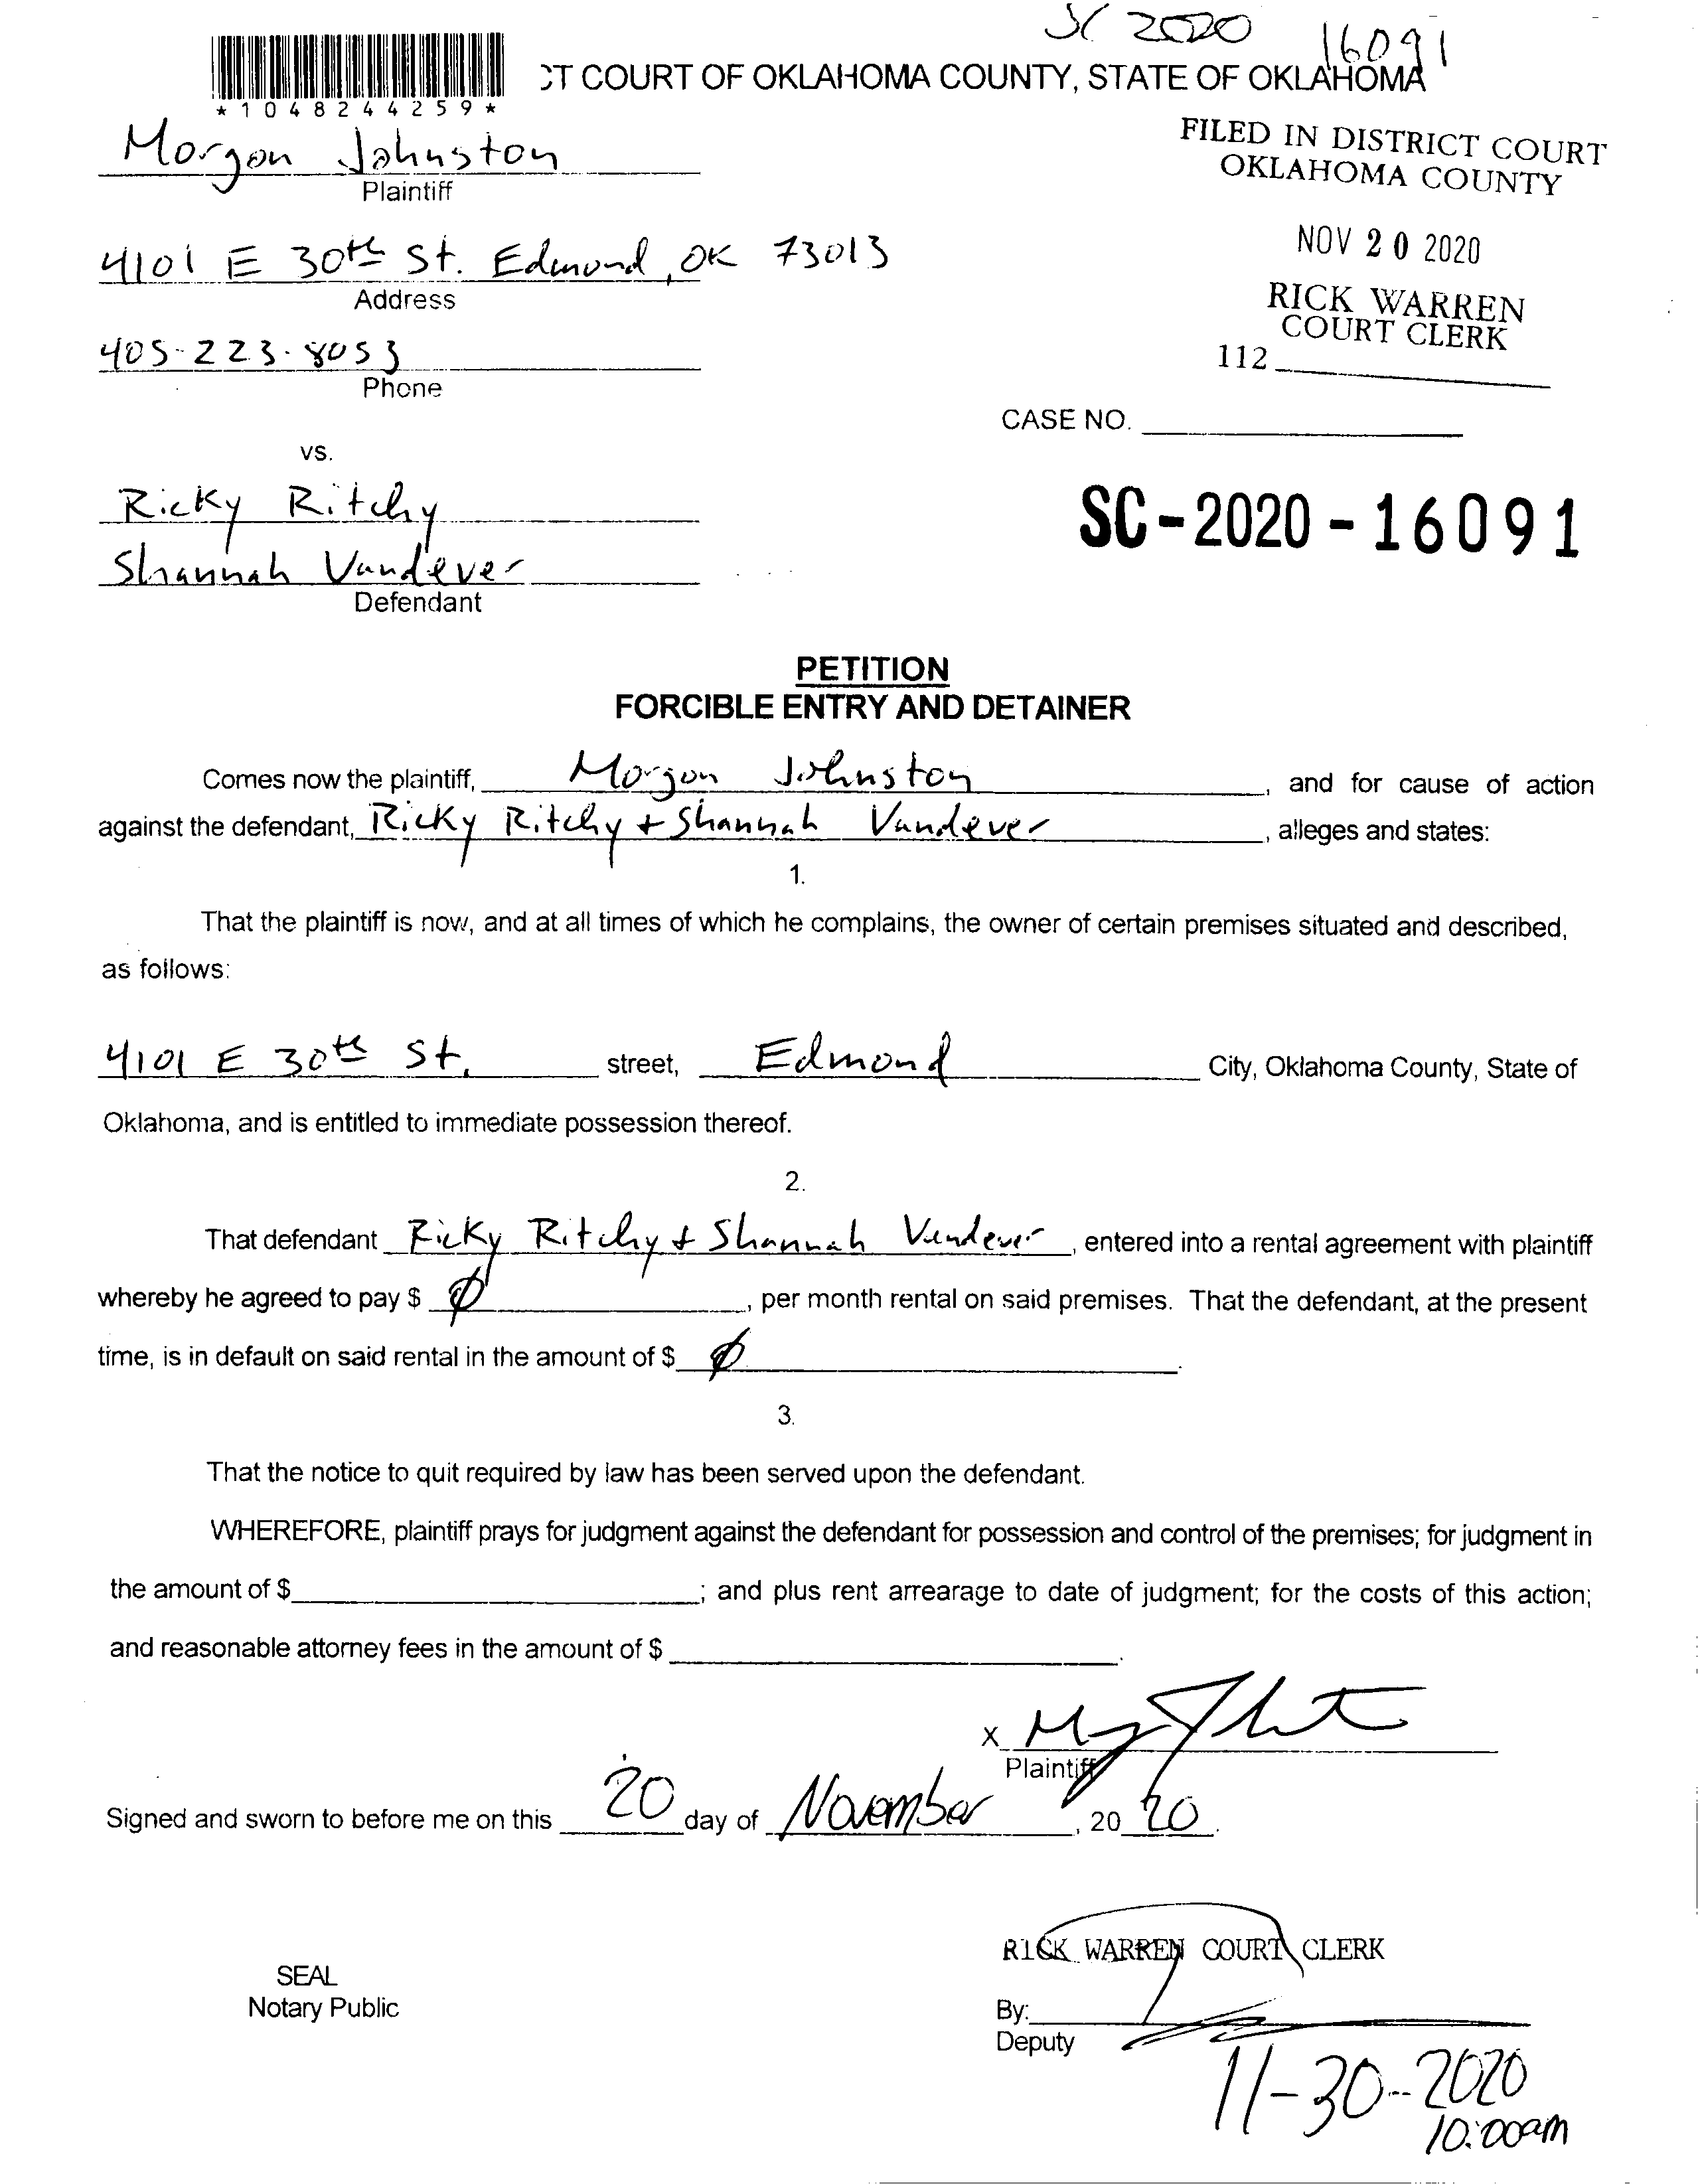 SC 2020 16091
*1048244259*
CT COURT OF OKLAHOMA COUNTY, STATE OF OKLAHOMA
Morgan Johnston
Plaintiff
FILED IN DISTRICT COURT
OKLAHOMA COUNTY
4101 E 30th St. Edmond, OK 73013
Address
NOV 20 2020
RICK WARREN
COURT CLERK
112
405-223-8053
Phone
CASE NO.
vs.
Ricky Ritchy
Shannah Vandever
Defendant
SC-2020-16091
PETITION
FORCIBLE ENTRY AND DETAINER
Comes now the plaintiff, Morgan Johnston, and for cause of action
against the defendant, Ricky Ritchy + Shannah Vandever, alleges and states:
1.
That the plaintiff is now, and at all times of which he complains, the owner of certain premises situated and described,
as follows:
4101 E 30th St. street, Edmond City, Oklahoma County, State of
Oklahoma, and is entitled to immediate possession thereof.
2.
That defendant Ricky Ritchy + Shannah Vandever, entered into a rental agreement with plaintiff
whereby he agreed to pay $ Ø, per month rental on said premises. That the defendant, at the present
time, is in default on said rental in the amount of $ Ø.
3.
That the notice to quit required by law has been served upon the defendant.
WHEREFORE, plaintiff prays for judgment against the defendant for possession and control of the premises; for judgment in
the amount of $; and plus rent arrearage to date of judgment; for the costs of this action;
and reasonable attorney fees in the amount of $.
X
Plaintiff
Signed and sworn to before me on this 20 day of November, 20 20.
RICK WARREN COURT CLERK
SEAL
Notary Public
By:
Deputy
11-30-2020
10:00am